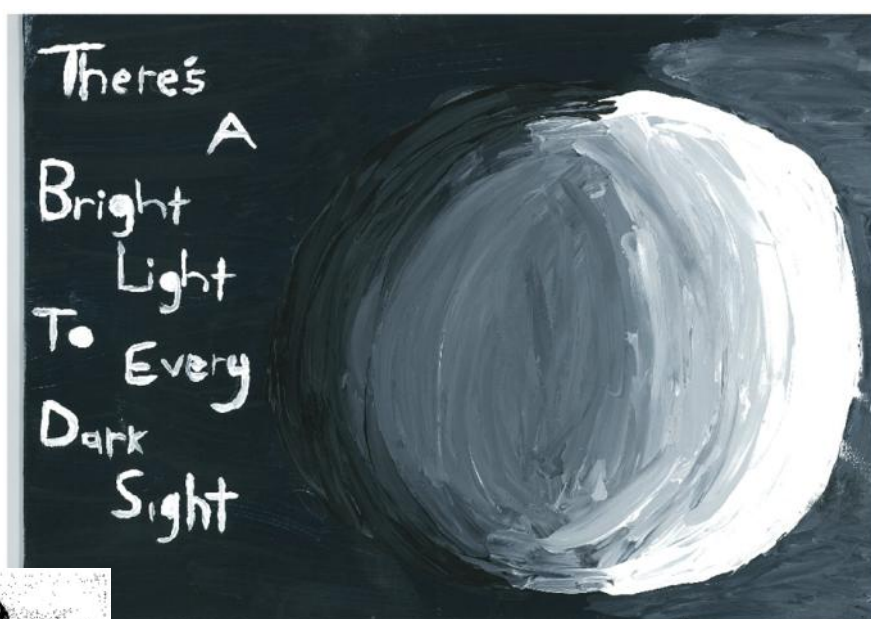 There's
A
Bright
Light
To
Every
Dark
Sight